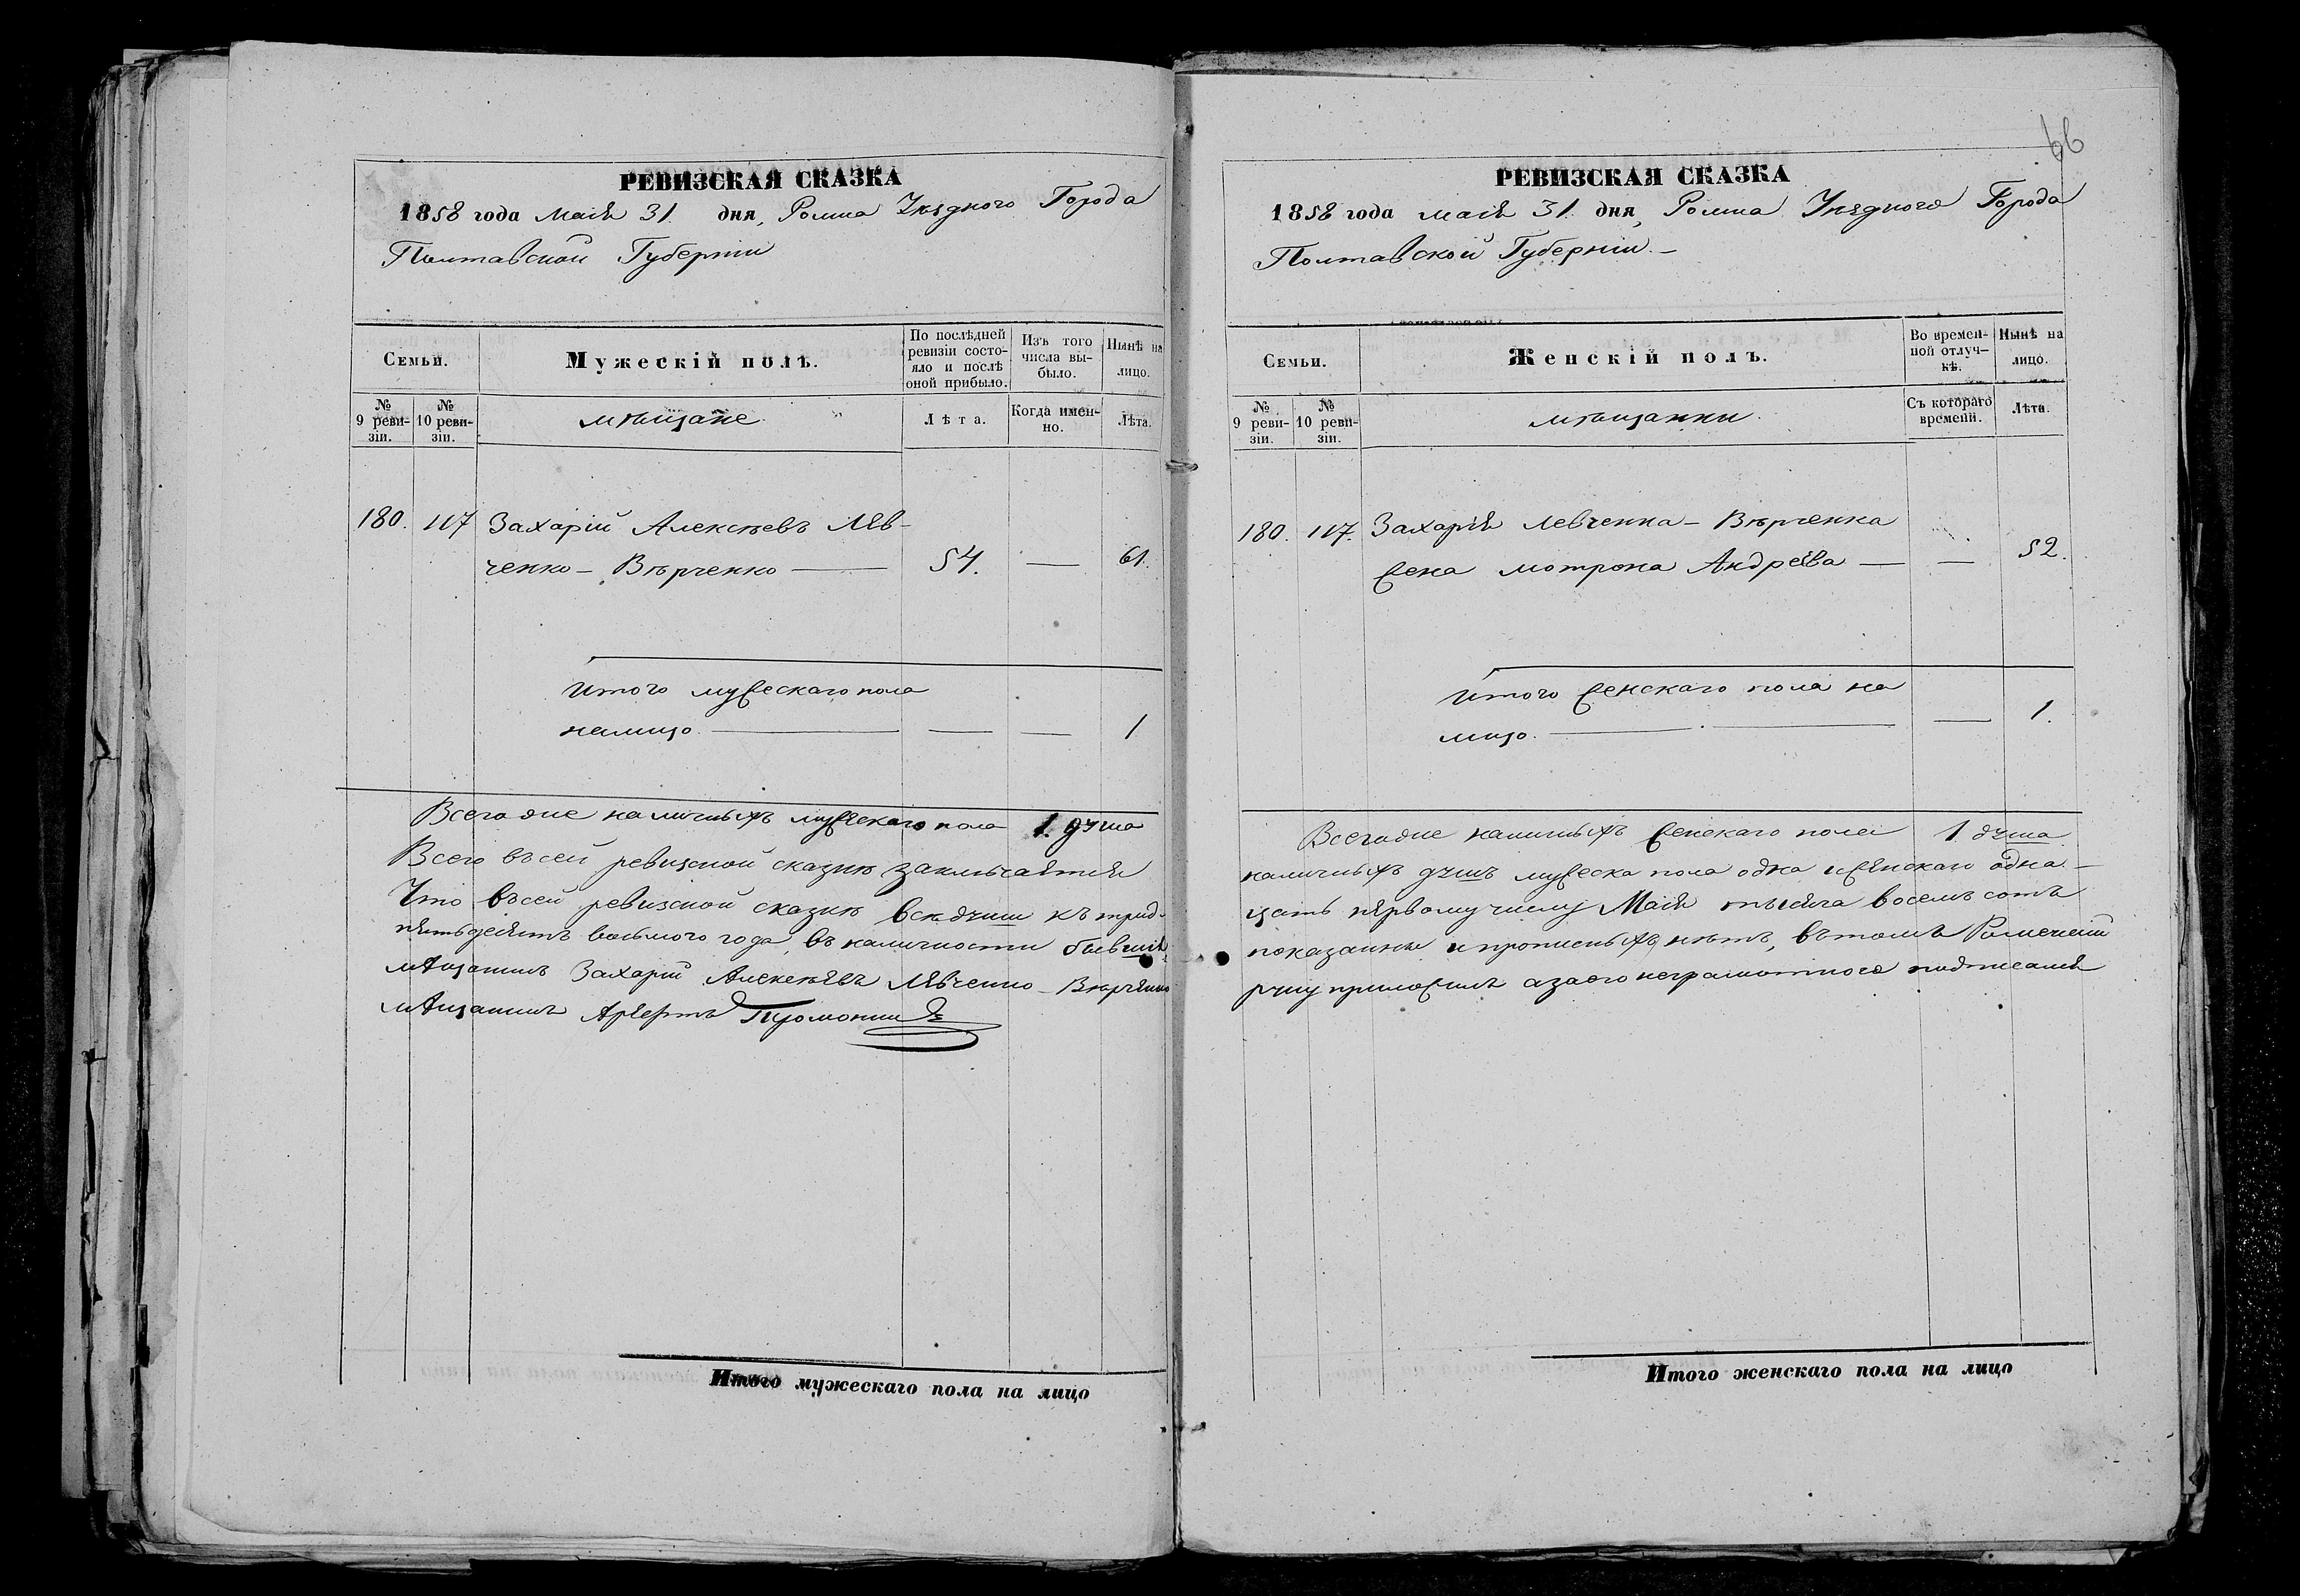 РЕВИЗСКАЯ СКАЗКА
1858 года Маія 31. дня, Ромна Уѣзднаго Города
Полтавской Губерніи
Семьи.
Мужескій полъ.
По послѣдней ревизіи состояло и послѣ оной прибыло.
Изъ того числа выбыло.
Нынѣ на лицо.
№ 9 ревизіи.
№ 10 ревизіи.
мѣщане
Лѣта.
Когда именно.
Лѣта.
180. 117 Захарій Алексѣевъ Лев-
ченко - Вѣрченко — 54. — 61.
Итого мужескаго пола
налицо — — — 1
Всего наличныхъ мужескаго пола 1. душа
Всего въсей ревизской сказкѣ заключается
Что въсей ревизской сказкѣ всѣ души къ трид-
пятьдесятъ восьмого года, въ наличности бывшія
мѣщанинъ Захарій Алексѣевъ Левченко - Вѣрченко
мѣщанинъ
РЕВИЗСКАЯ СКАЗКА
66
1858 года маія 31. дня, Ромна Уѣзднаго Города
Полтавской Губерніи. -
Семьи.
Женскій полъ.
Во временной отлучкѣ.
Нынѣ на лицо.
№ 9 ревизіи.
№ 10 ревизіи.
мѣщанки.
Съ котораго времени.
Лѣта.
180. 117. Захарія Левченка - Вѣрченка
жена мотрона Андреева — — 52.
Итого женскаго пола на
лицо. — — 1.
Всего наличныхъ женскаго пола 1 душа
наличныхъ душъ мужеска пола одна иженскаго одна. -
цать первому числу Маія тысяча восемь сотъ
показанны и прописныхъ нѣтъ, вътомъ Роменскій
руку приложилъ азаего неграмотнаго подписался
Итого мужескаго пола на лицо
Итого женскаго пола на лицо